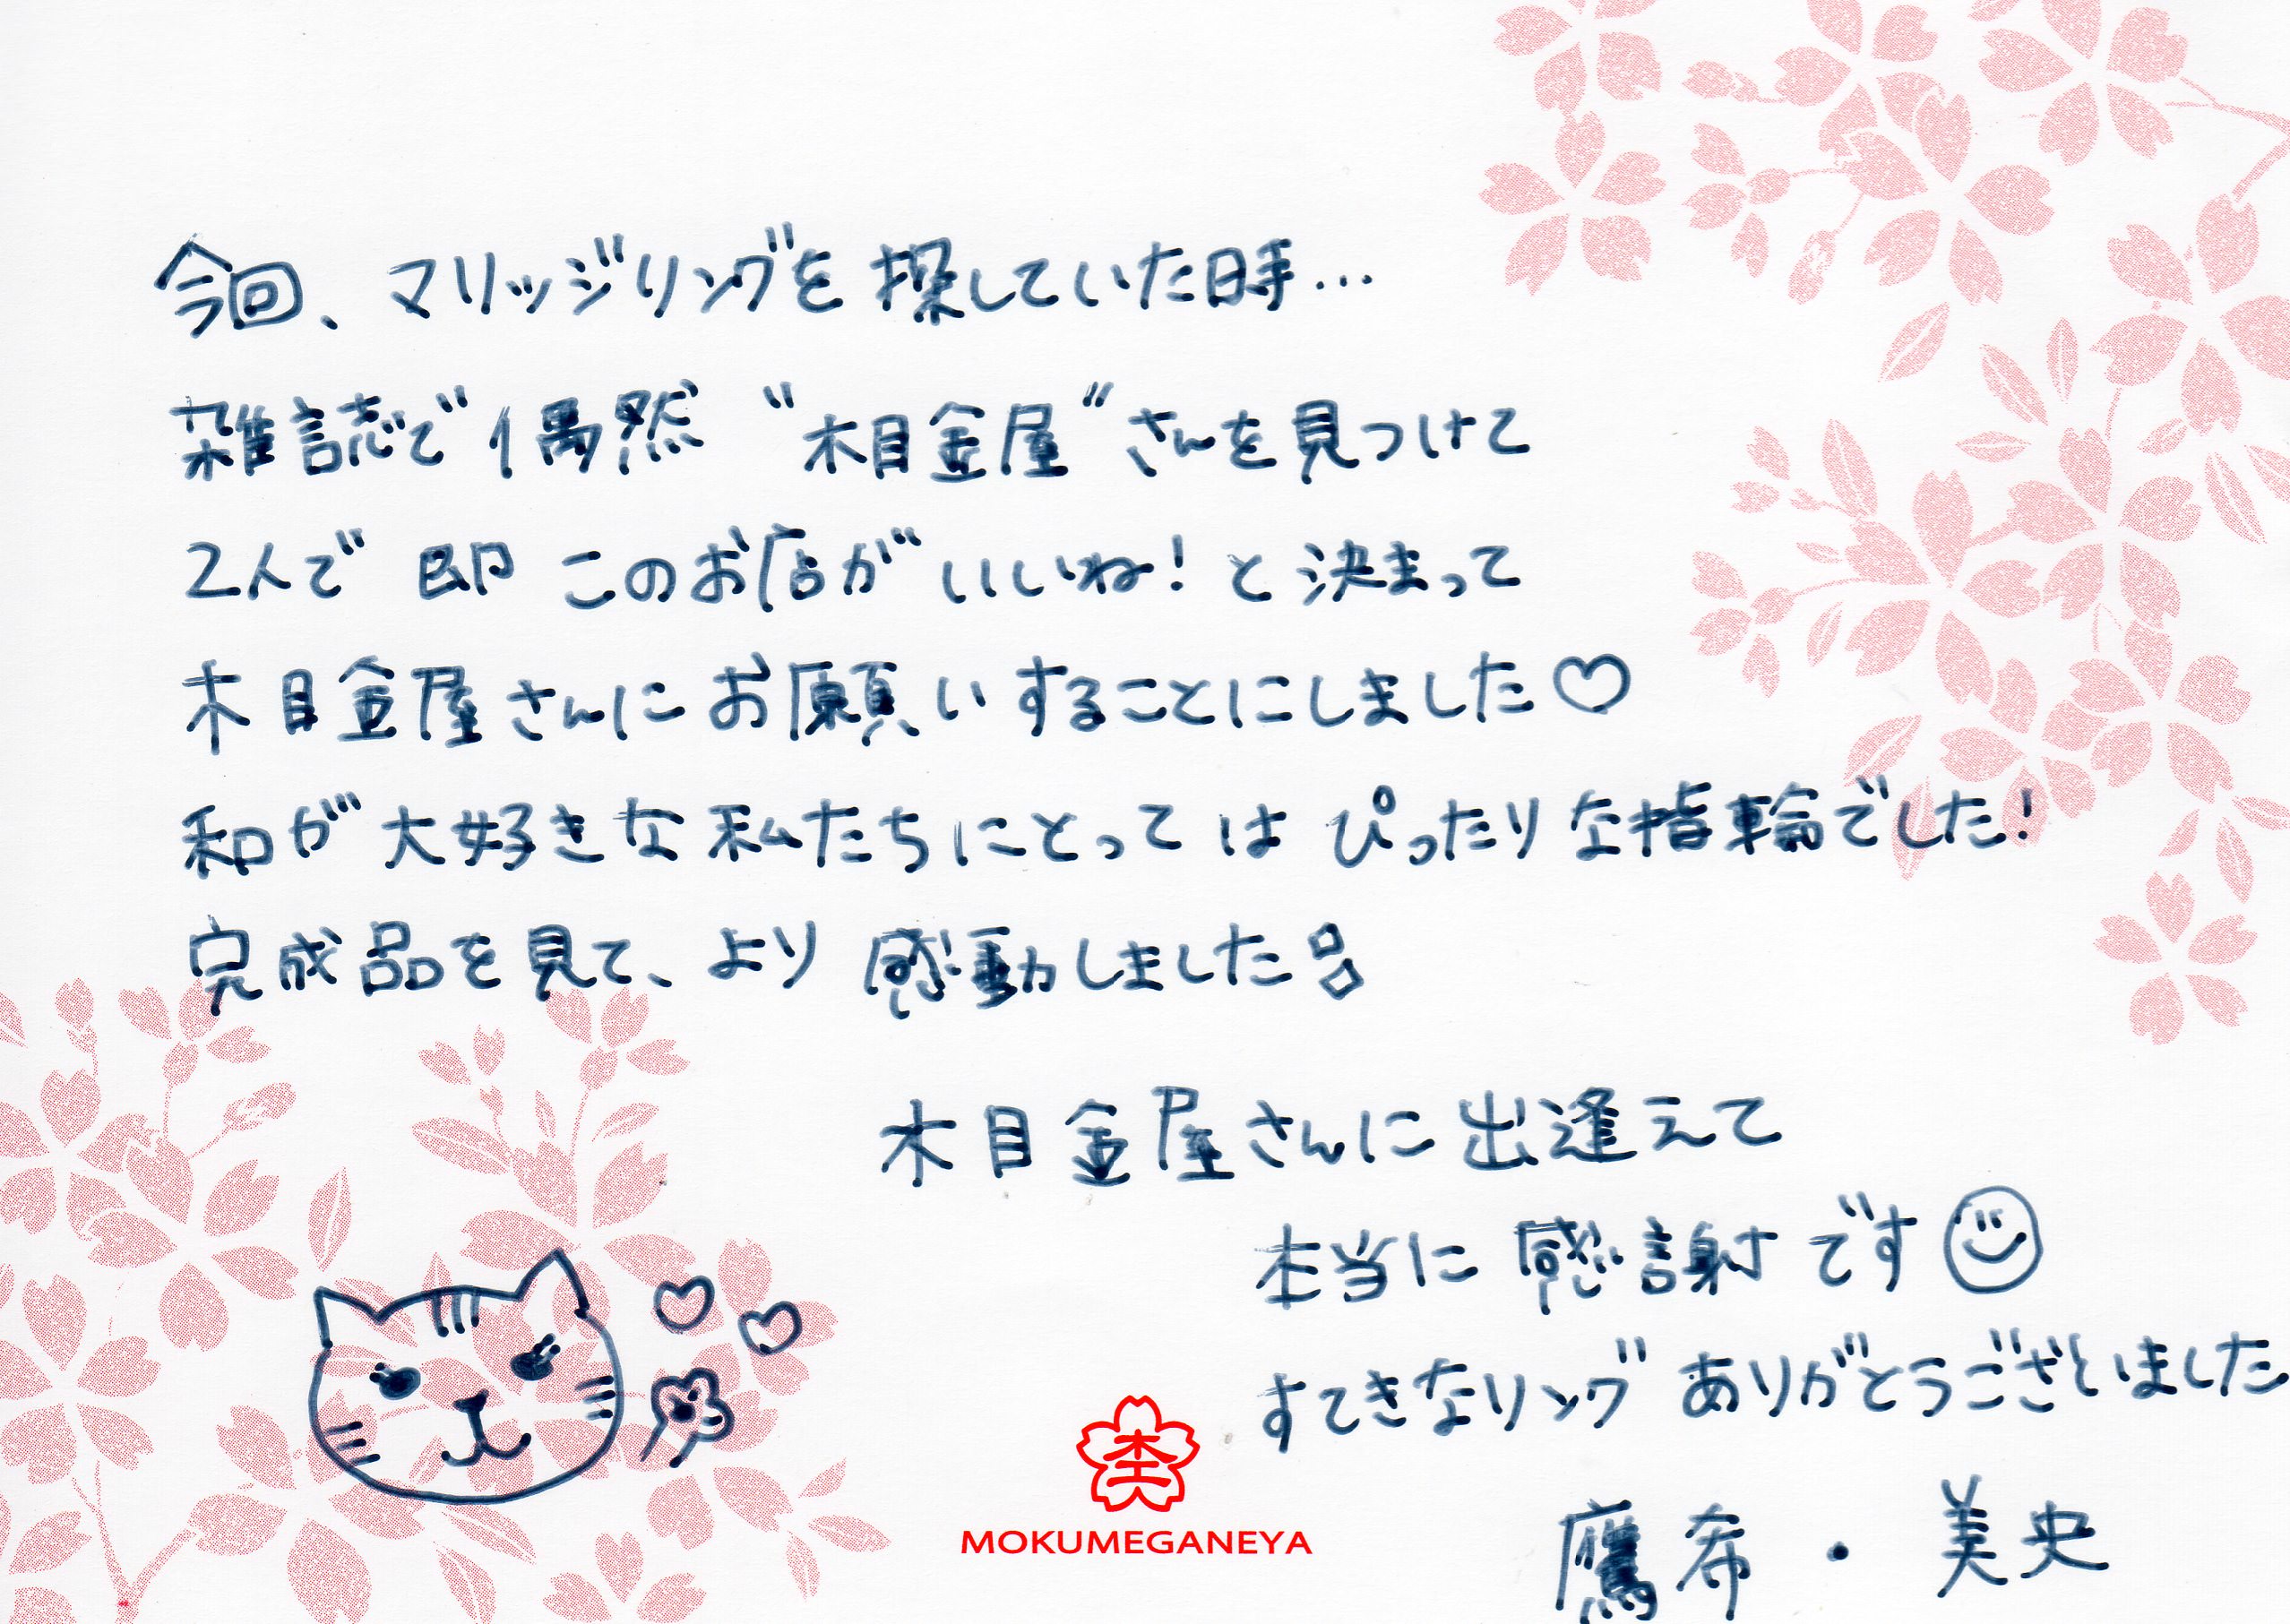 今回、マリッジリングを探していた時…
雑誌で偶然 "木目金屋" さんを見つけて
2人で 即 このお店がいいね！と決まって
木目金屋さんにお願いすることにしました♡
和が大好きな私たちにとっては ぴったりな指輪でした！
完成品を見て、より 感動しました!!
木目金屋さんに出逢えて
本当に感謝です☺
すてきなリング ありがとうございました
鷹希・美央
杢
MOKUMEGANEYA